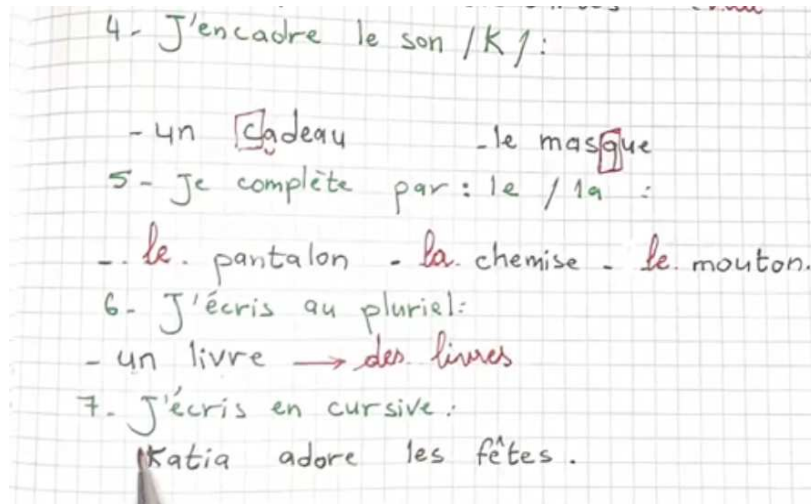 4- J'encadre le son /K/:
- un cadeau - le masque
5- Je complète par: le / la :
- .le. pantalon - la. chemise - le. mouton.
6- J'écris au pluriel:
- un livre → des livres
7- J'écris en cursive:
Katia adore les fêtes.